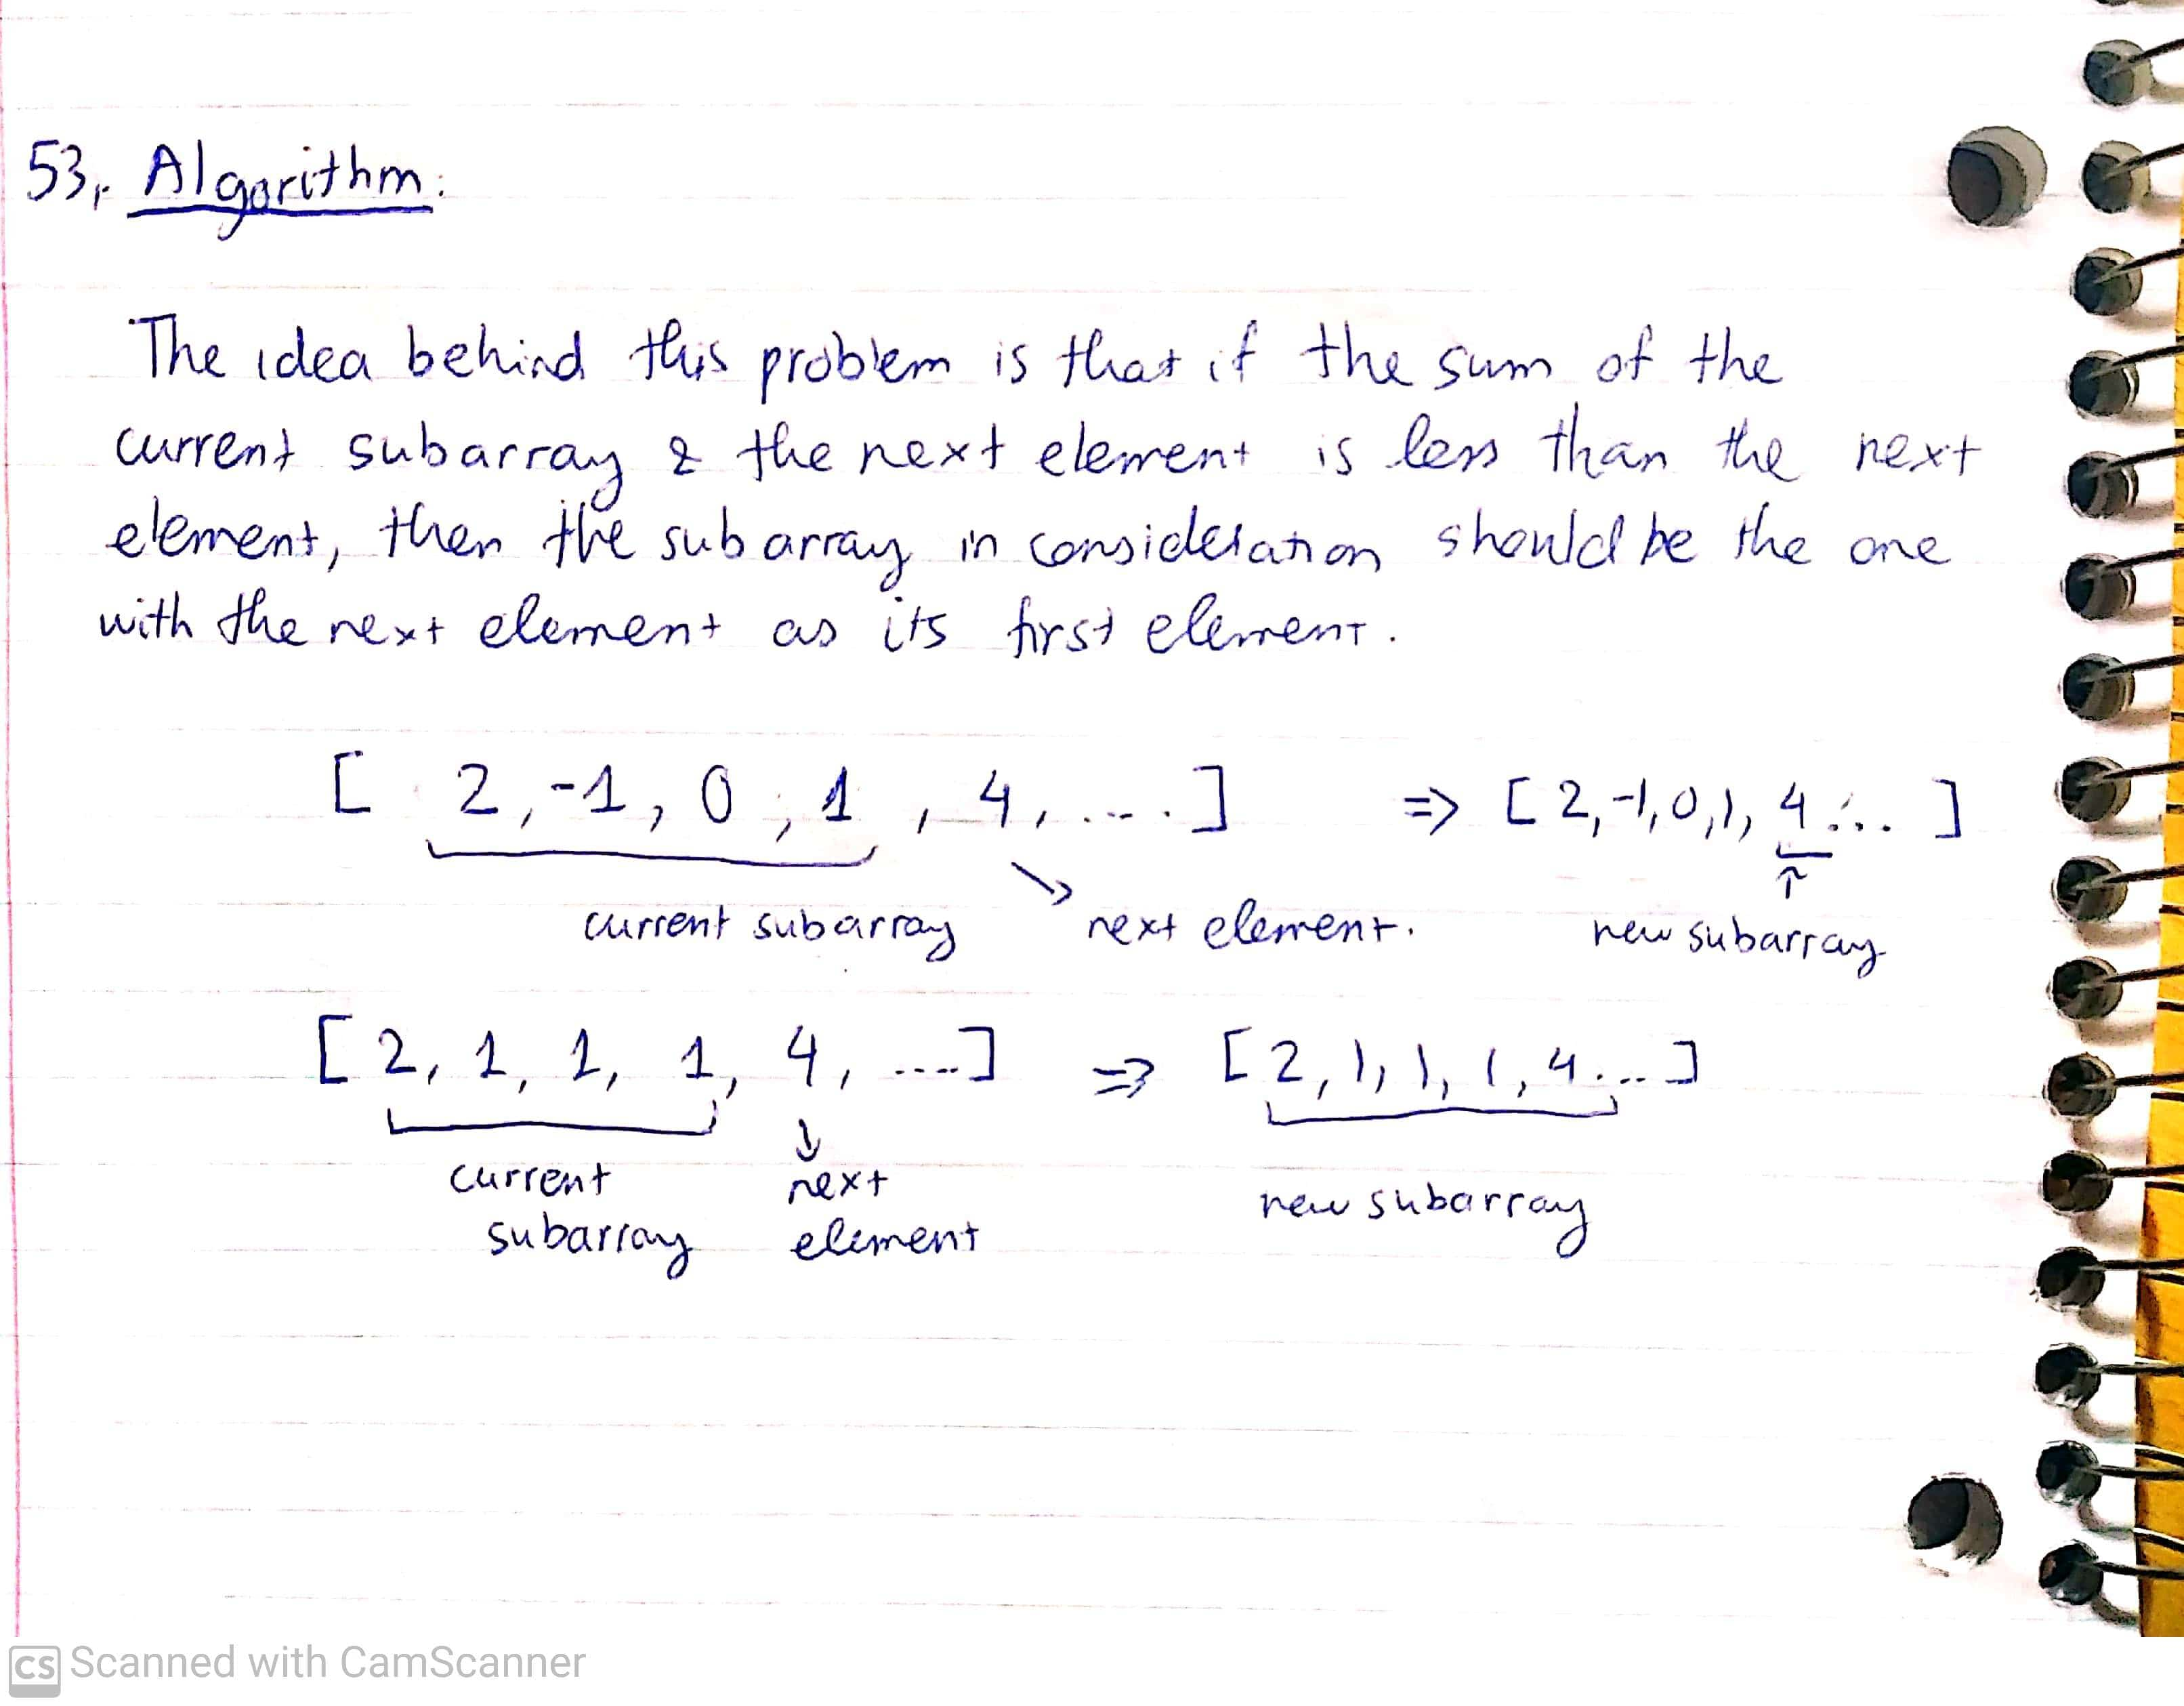 53, Algorithm:
The idea behind this problem is that if the sum of the
current subarray & the next element is less than the next
element, then the subarray in consideration should be the one
with the next element as its first element.
[ 2, -1, 0, 1, 4, ....] => [2,-1,0,1, 4 ... ]
current subarray next element. new subarray
[ 2, 1, 1, 1, 4, ....] => [2, 1, 1, 1, 4....]
current next
subarray element new subarray
CS Scanned with CamScanner